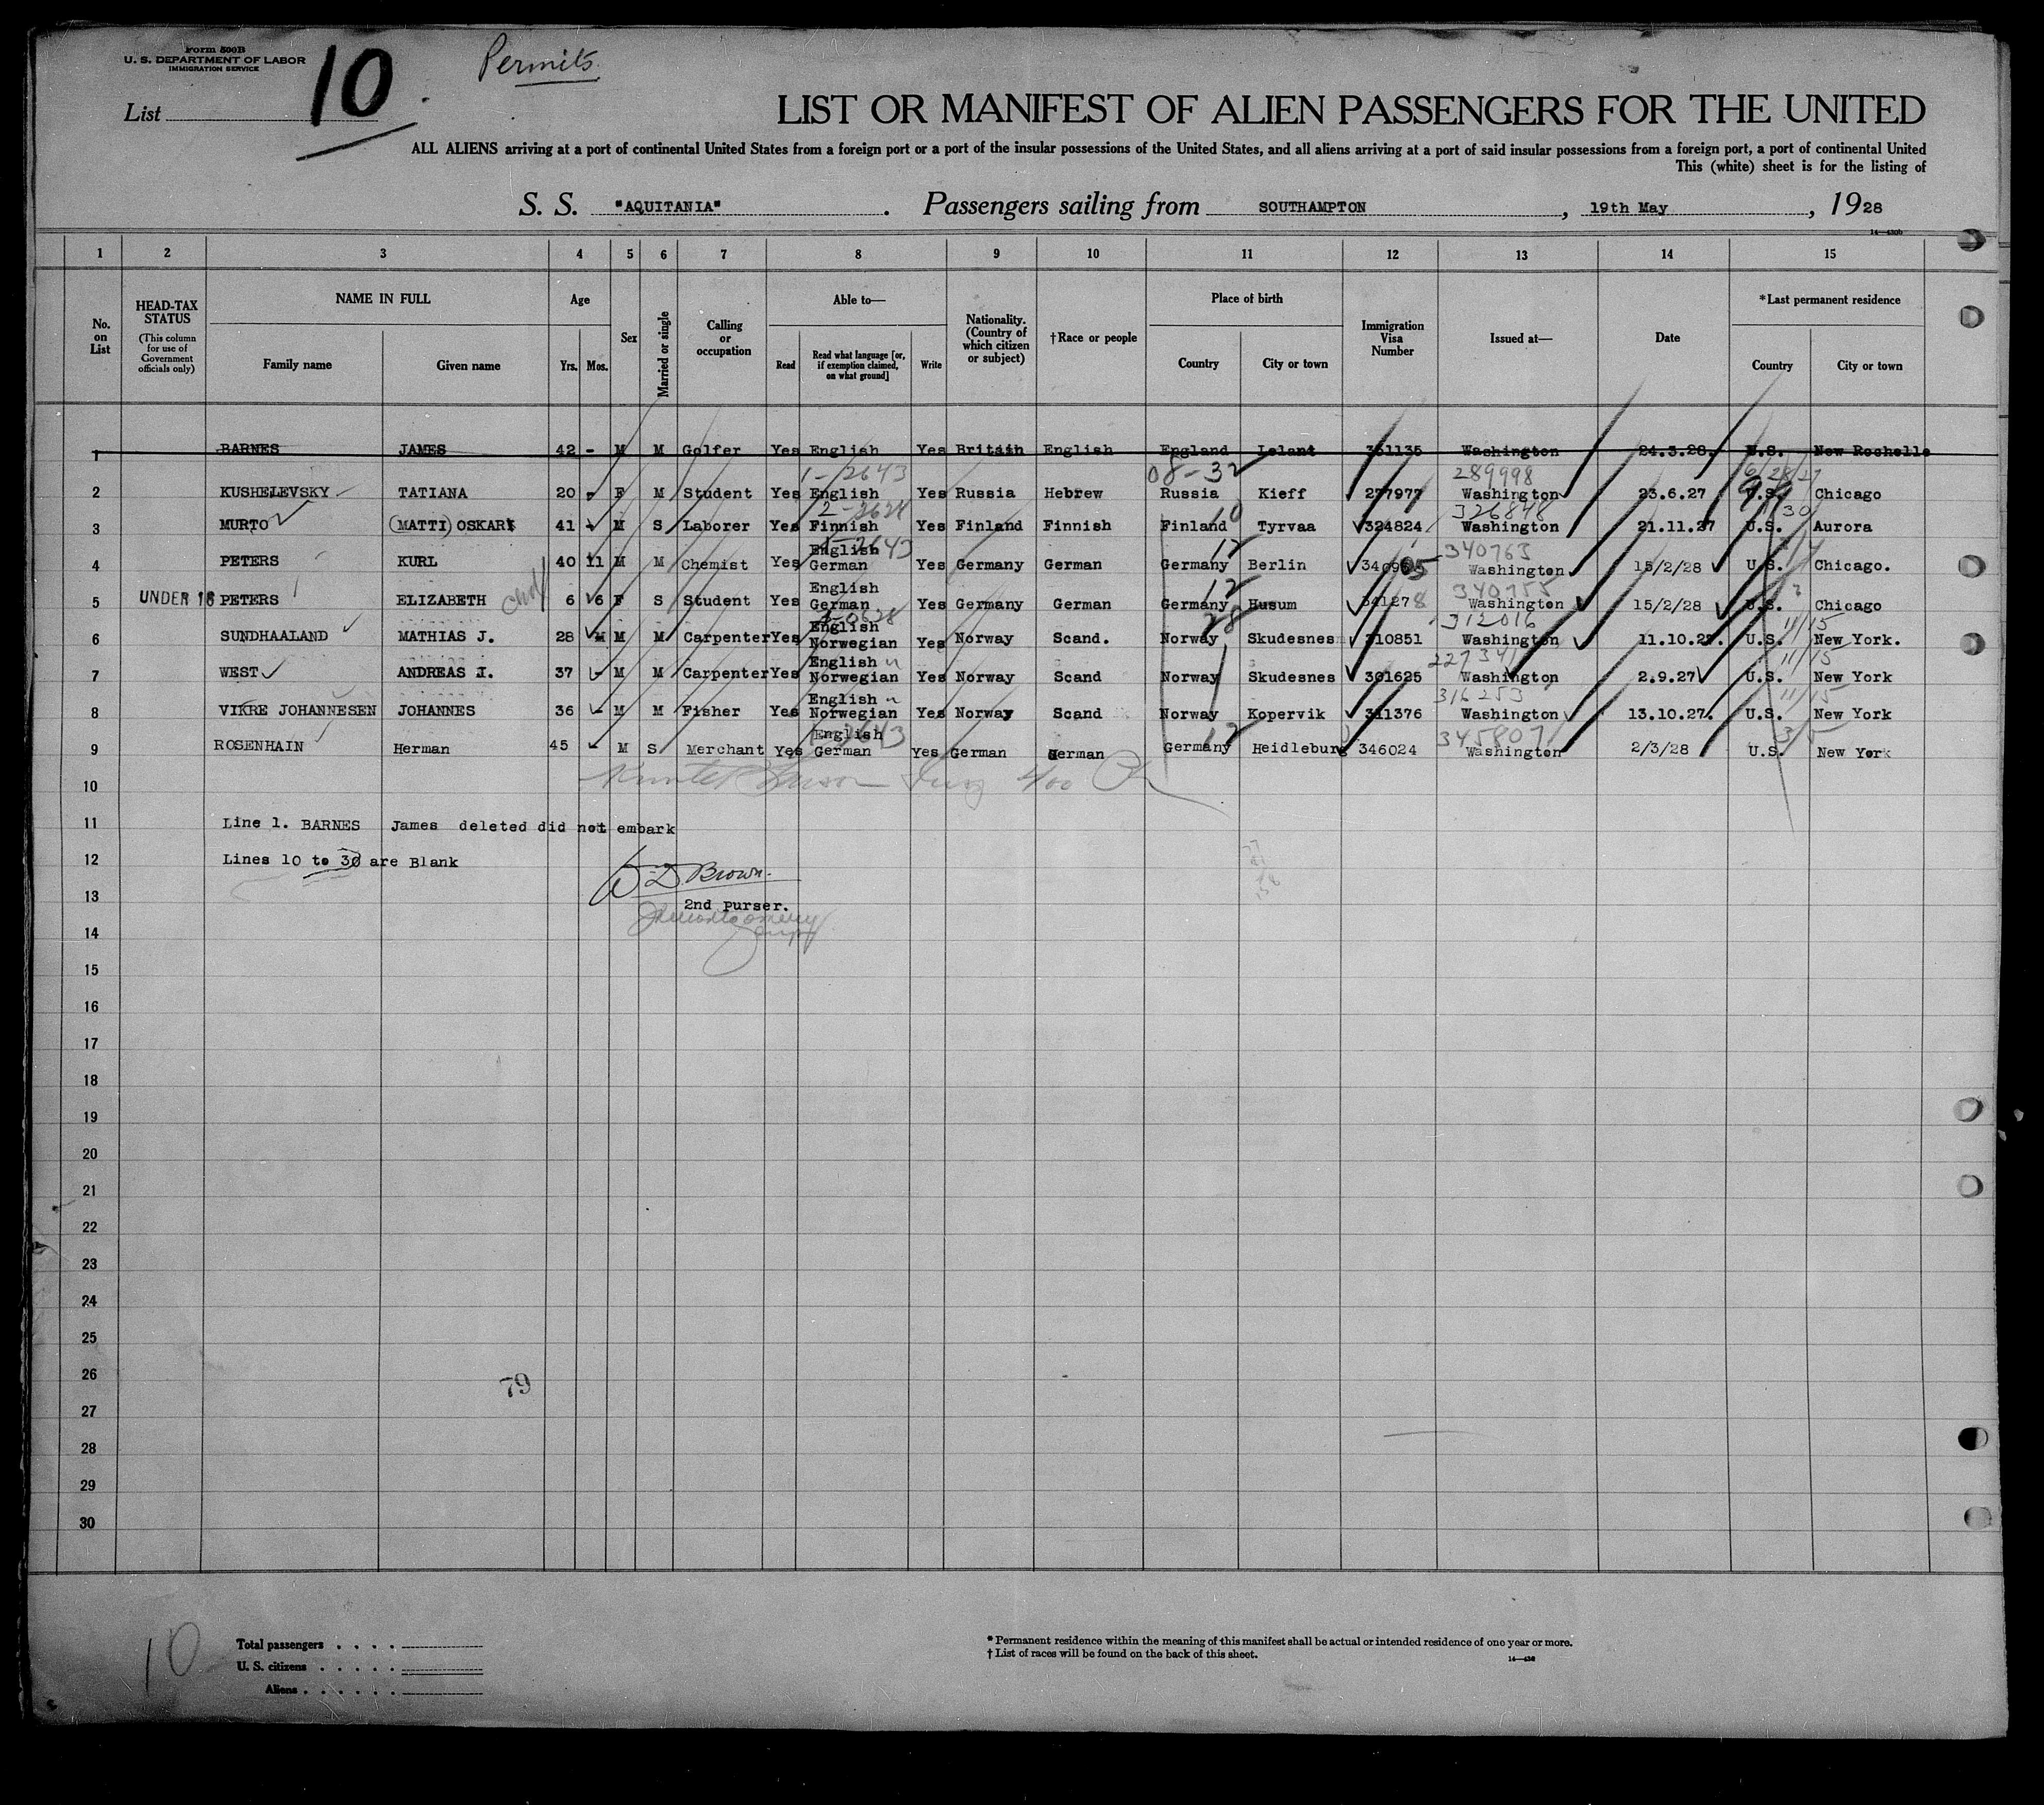 Form 500B
U. S. DEPARTMENT OF LABOR
IMMIGRATION SERVICE
List 10
Permits.
LIST OR MANIFEST OF ALIEN PASSENGERS FOR THE UNITED
ALL ALIENS arriving at a port of continental United States from a foreign port or a port of the insular possessions of the United States, and all aliens arriving at a port of said insular possessions from a foreign port, a port of continental United
This (white) sheet is for the listing of
S. S. "AQUITANIA". Passengers sailing from SOUTHAMPTON, 19th May, 1928
14—430b
1 2 3 4 5 6 7 8 9 10 11 12 13 14 15
No. on List
HEAD-TAX STATUS
(This column for use of Government officials only)
NAME IN FULL
Family name
Given name
Age
Yrs. Mos.
Sex
Married or single
Calling or occupation
Able to—
Read
Read what language [or, if exemption claimed, on what ground]
Write
Nationality. (Country of which citizen or subject)
†Race or people
Place of birth
Country
City or town
Immigration Visa Number
Issued at—
Date
*Last permanent residence
Country
City or town
1 BARNES JAMES 42 - M M Golfer Yes English Yes Britain English England Lelant 351135 Washington 24.3.28. U.S. New Rochelle
1-2643 08-32 289998 6/28/27
2 KUSHELEVSKY TATIANA 20 - F M Student Yes English Yes Russia Hebrew Russia Kieff 277977 Washington 23.6.27 U.S. Chicago
2-2624 10 326848 30
3 MURTO (MATTI) OSKAR 41 - M S Laborer Yes Finnish Yes Finland Finnish Finland Tyrvaa 324824 Washington 21.11.27 U.S. Aurora
English 2643 12 340763
4 PETERS KURL 40 11 M M Chemist Yes German Yes Germany German Germany Berlin Washington 15/2/28 U.S. Chicago.
English 12 340755
5 UNDER 16 PETERS ELIZABETH Chd 6 6 F S Student Yes German Yes Germany German Germany Husum 341278 Washington 15/2/28 U.S. Chicago
English 28 312016 11/15
6 SUNDHAALAND MATHIAS J. 28 M M Carpenter Yes Norwegian Yes Norway Scand. Norway Skudesnes 310851 Washington 11.10.27. U.S. New York.
English 227341 11/15
7 WEST ANDREAS I. 37 - M M Carpenter Yes Norwegian Yes Norway Scand Norway Skudesnes 301625 Washington 2.9.27 U.S. New York
English 316253 11/15
8 VIKRE JOHANNESEN JOHANNES 36 - M M Fisher Yes Norwegian Yes Norway Scand Norway Kopervik 311376 Washington 13.10.27. U.S. New York
English 2643 12 345807 3/5
9 ROSENHAIN Herman 45 - M S Merchant Yes German Yes German German Germany Heidleburg 346024 Washington 2/3/28 U.S. New York
10
11 Line 1. BARNES James deleted did not embark
12 Lines 10 to 30 are Blank
D Brown.
13 2nd purser.
14
15
16
17
18
19
20
21
22
23
24
25
26
79
27
28
29
30
10
Total passengers . . . .
U. S. citizens . . . . .
Aliens . . . . . .
* Permanent residence within the meaning of this manifest shall be actual or intended residence of one year or more.
† List of races will be found on the back of this sheet.
14—430